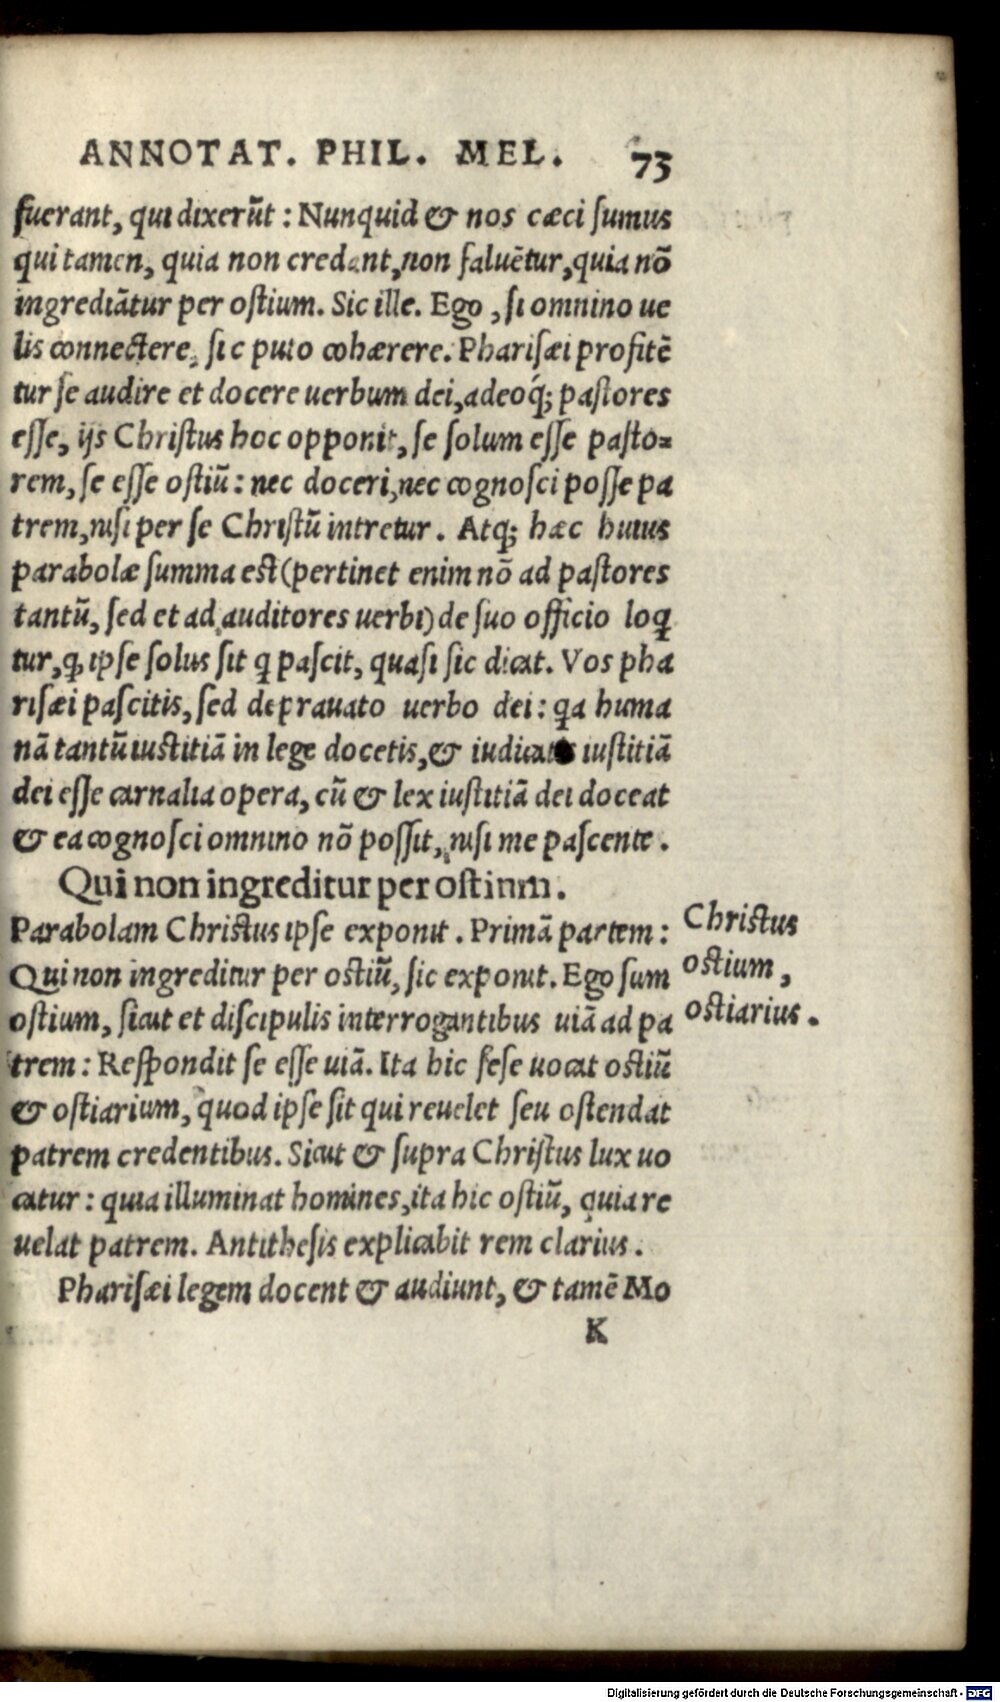 ANNOTAT. PHIL. MEL. 73
fuerant, qui dixerũt : Nunquid & nos cæci sumus
qui tamen, quia non credant, non saluẽtur, quia nõ
ingrediãtur per ostium. Sic ille. Ego, si omnino ue
lis connectere, sic puto cohærere. Pharisæi profitẽ
tur se audire et docere uerbum dei, adeoq́; pastores
esse, ijs Christus hoc opponit, se solum esse pasto=
rem, se esse ostiũ : nec doceri, nec cognosci posse pa
trem, nisi per se Christũ intretur. Atq; hæc huius
parabolæ summa est (pertinet enim nõ ad pastores
tantũ, sed et ad auditores uerbi) de suo officio loq̃
tur, ꝙ ipse solus sit q̃ pascit, quasi sic dicat. Vos pha
risæi pascitis, sed deprauato uerbo dei : q̃a huma
nã tantũ iustitiã in lege docetis, & iudicatis iustitiã
dei esse carnalia opera, cũ & lex iustitiã dei doceat
& ea cognosci omnino nõ possit, nisi me pascente.
Qui non ingreditur per ostium.
Parabolam Christus ipse exponit. Primã partem :
Qui non ingreditur per ostiũ, sic exponit. Ego sum
ostium, sicut et discipulis interrogantibus uiã ad pa
trem : Respondit se esse uiã. Ita hic sese uocat ostiũ
& ostiarium, quod ipse sit qui reuelet seu ostendat
patrem credentibus. Sicut & supra Christus lux uo
catur : quia illuminat homines, ita hic ostiũ, quia re
uelat patrem. Antithesis explicabit rem clarius.
Pharisæi legem docent & audiunt, & tamẽ Mo
K
Christus
ostium,
ostiarius.
Digitalisierung gefördert durch die Deutsche Forschungsgemeinschaft - DFG